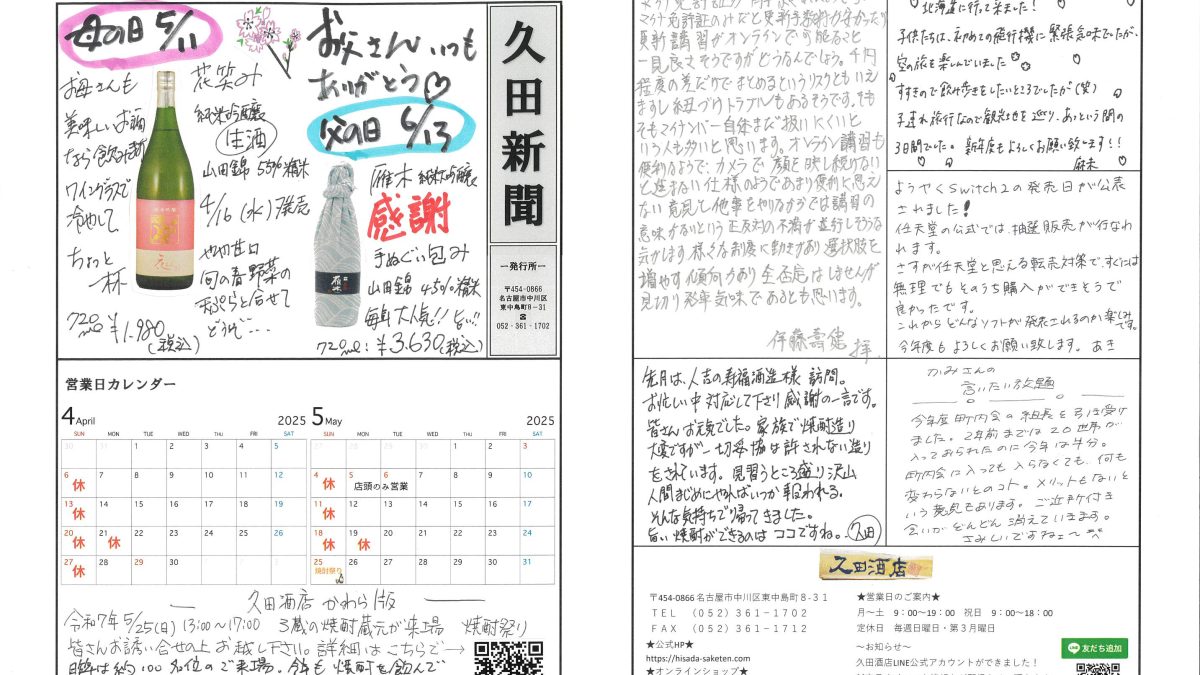 母の日 5/11
お母さんも
美味しいお酒
なら飲みます
ワイングラスで
冷やして
ちょっと
一杯
720ml ¥1,980
(税込)
花笑み
純米吟醸
生酒
山田錦 55%精米
4/16(水)発売
やや甘口
旬の春野菜の
天ぷらと合せて
どうぞ…
お父さんいつも
ありがとう
父の日 6/13
雁木 純米吟醸
感謝
手ぬぐい包み
山田錦 45%精米
毎年大人気!! 旨い!!
720ml: ¥3,630(税込)
久田新聞
ー発行所ー
〒454-0866
名古屋市中川区
東中島町8-31
☎
052-361-1702
営業日カレンダー
4 April 2025
SUN MON TUE WED THU FRI SAT
30 31 1 2 3 4 5
6 休 7 8 9 10 11 12
13 休 14 15 16 17 18 19
20 休 21 休 22 23 24 25 26
27 休 28 29 30 1 2 3
5 May 2025
SUN MON TUE WED THU FRI SAT
27 28 29 30 1 2 3
4 休 5 6 7 8 9 10
店頭のみ営業
11 休 12 13 14 15 16 17
18 休 19 休 20 21 22 23 24
25 26 27 28 29 30 31
焼酎祭り
久田酒店 かわら版
令和7年5/25(日)13:00〜17:00 3蔵の焼酎蔵元が来場 焼酎祭り
皆さんお誘い合せの上お越し下さい。詳細はこちらで→
昨年は約100名位のご来場。今年も焼酎を飲んで
マイナ免許証のみだと更新手数料が安かったり
更新講習がオンラインで可能なこと
一見良さそうですがどうなんでしょう。千円
程度の差だけでまとめるというリスクもいえ
ますし紐づけトラブルもあるそうです。そも
そもマイナンバー自体まだ扱いにくいと
いう人も多いと思います。オンライン講習も
便利なようで、カメラで顔を映し続けない
と進まない仕様のようであまり便利に思え
ない意見と他事をやりながらでは講習の
意味がないという正反対の不満が並行しそうな
気がします。様々な制度に動きがあり選択肢を
増やす傾向にあり全否定はしませんが
見切り発車気味であるとも思います。
伊藤壽健 拝.
先月は、人吉の寿福酒造様 訪問。
お忙しい中対応して下さり感謝の一言です。
皆さんお元気でした。家族で焼酎造り
大変ですが一切妥協は許されない造り
をされています。見習うところ盛り沢山
人間まじめにやればいつか報われる。
そんな気持ちで帰ってきました。
旨い焼酎ができるのはココですね。 久田
北海道に行って来ました!
子供たちは、初めての飛行機に緊張気味でしたが、
空の旅を楽しんでいました
すすきので飲み歩きをしたいところでしたが(笑)
子連れ旅行なので観光地を巡り、あっという間の
3日間でした。 新年度もよろしくお願い致します!!
麻未
ようやくSwitch2の発売日が公表
されました!
任天堂の公式では、抽選販売が行なわ
れます。
さすが任天堂と思える転売対策で、すぐには
無理でもそのうち購入ができそうで
良かったです。
これからどんなソフトが発表されるのか楽しみ
です。
今年度もよろしくお願い致します。 あき
かみさんの
言いたい放題
今年度町内会の組長を引き受け
ました。2年前までは20世帯が
入っておられたのに今年は半分。
町内会に入っても入らなくても、何も
変わらないとのコト。メリットもないと
いう意見もあります。ご近所付き
合いがどんどん消えていきます。
さみしいですねェ〜
久田酒店
〒454-0866 名古屋市中川区東中島町8-31
TEL (052)361-1702
FAX (052)361-1712
★公式HP★
https://hisada-saketen.com
★オンラインショップ★
★営業日のご案内★
月〜土 9:00〜19:00 祝日 9:00〜18:00
定休日 毎週日曜日・第3月曜日
〜お知らせ〜
久田酒店LINE公式アカウントができました!
LINE 友だち追加